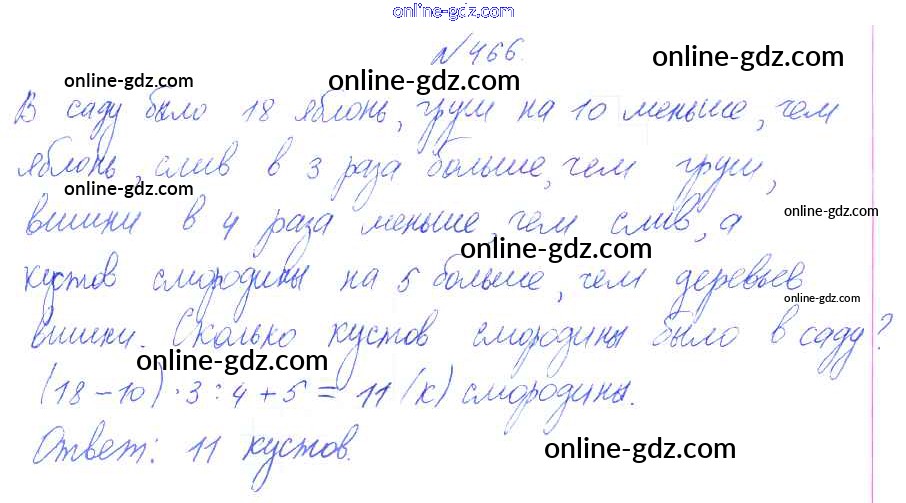 online-gdz.com
№466.
online-gdz.com online-gdz.com online-gdz.com
В саду было 18 яблонь, груш на 10 меньше, чем
яблонь, слив в 3 раза больше, чем груш,
online-gdz.com
вишни в 4 раза меньше, чем слив, а
online-gdz.com
online-gdz.com
кустов смородины на 5 больше, чем деревьев
online-gdz.com
вишни. Сколько кустов смородины было в саду?
online-gdz.com
(18-10)·3:4+5=11 (к) смородины.
Ответ: 11 кустов.
online-gdz.com